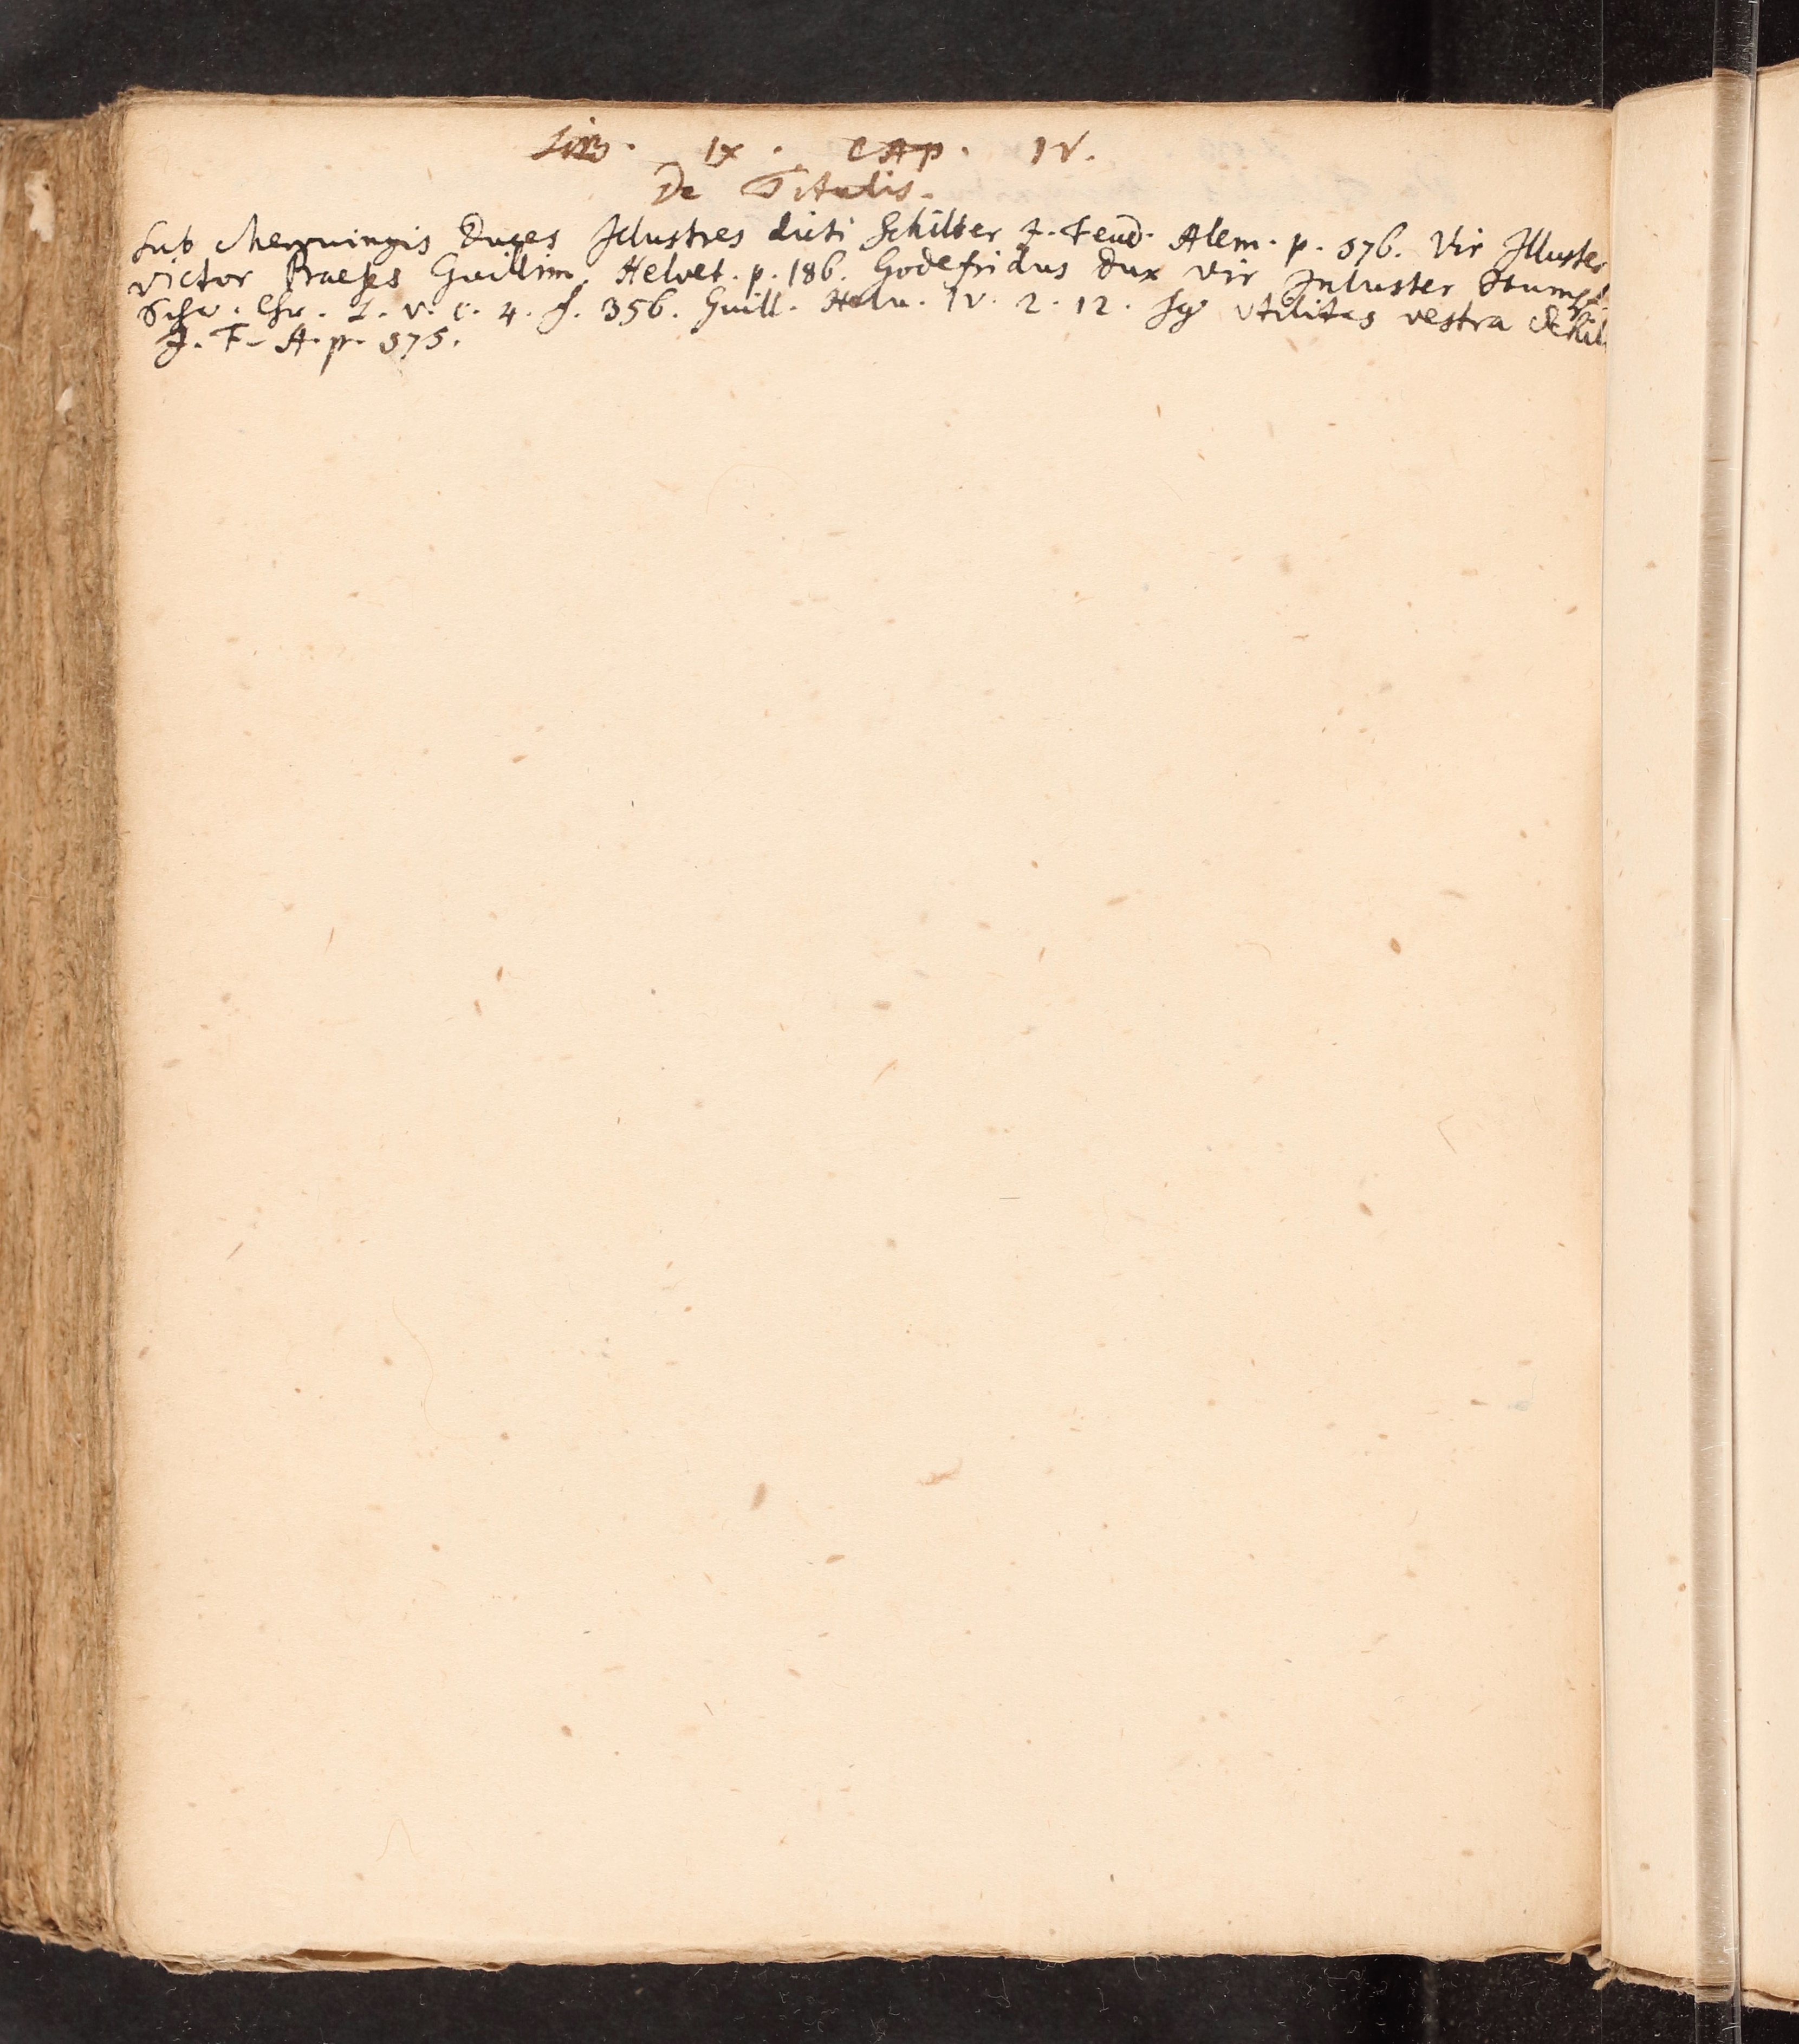 LIB. IX. CAP. IV.
De Titulis.
Sub Merruingis Duces Illustres dicti Schilter J. Feud. Alem. p. 576. Vir Illuster
Victor Praeses Guillim. Helvet. p. 186. Godefridus Dux Vir Inluster Stumpf.
Schw. Chr. L. V. c. 4. f. 356. Guill. Helv. IV. 2. 12. Utilitas vestra Schil
J. F. A. p. 575.